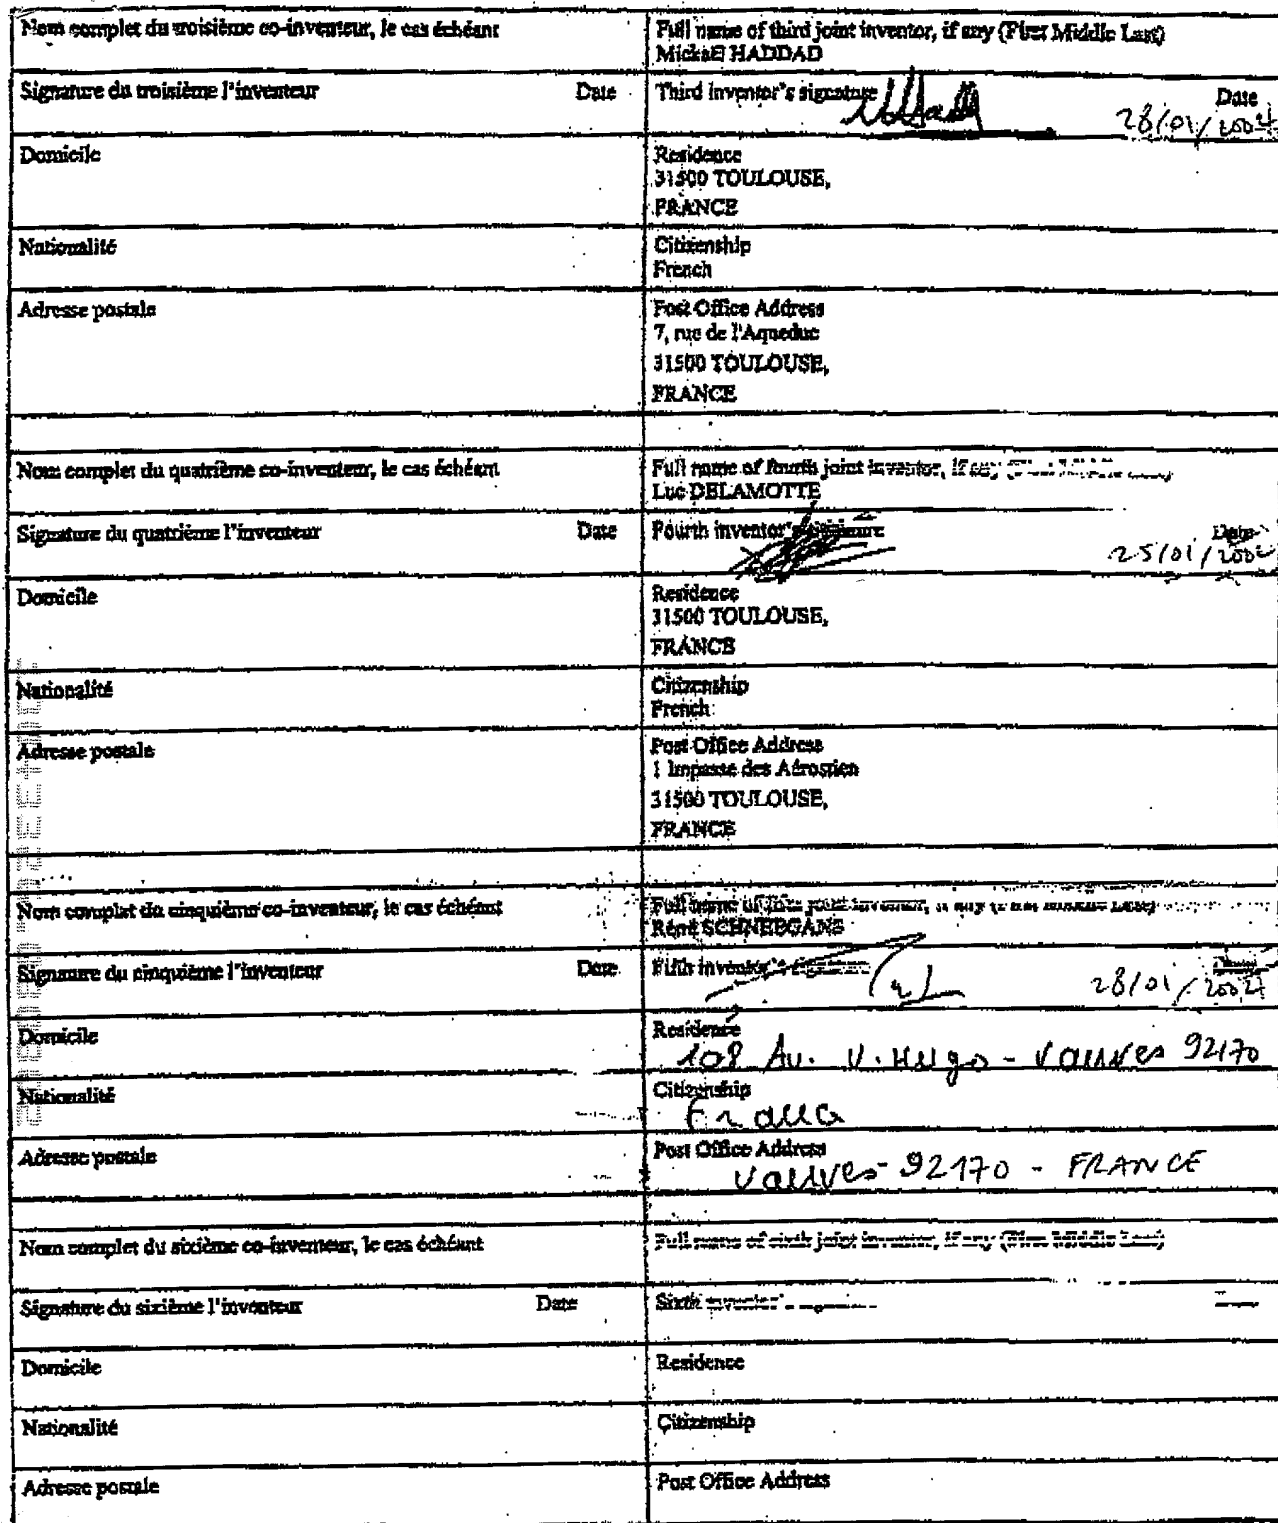 Nom complet du troisième co-inventeur, le cas échéant
Full name of third joint inventor, if any (First Middle Last)
Mickaël HADDAD
Signature du troisième l'inventeur Date
Third inventor's signature Date
28/01/2002
Domicile
Residence
31500 TOULOUSE,
FRANCE
Nationalité
Citizenship
French
Adresse postale
Post Office Address
7, rue de l'Aqueduc
31500 TOULOUSE,
FRANCE
Nom complet du quatrième co-inventeur, le cas échéant
Full name of fourth joint inventor, if any (First Middle Last)
Luc DELAMOTTE
Signature du quatrième l'inventeur Date
Fourth inventor's signature Date
25/01/2002
Domicile
Residence
31500 TOULOUSE,
FRANCE
Nationalité
Citizenship
French
Adresse postale
Post Office Address
1 Impasse des Aérostien
31500 TOULOUSE,
FRANCE
Nom complet du cinquième co-inventeur, le cas échéant
Full name of fifth joint inventor, if any (First Middle Last)
René SCHNEEGANS
Signature du cinquième l'inventeur Date
Fifth inventor's signature
28/01/2002
Domicile
Residence
108 Av. V. Hugo - Vanves 92170
Nationalité
Citizenship
France
Adresse postale
Post Office Address
Vanves - 92170 - FRANCE
Nom complet du sixième co-inventeur, le cas échéant
Full name of sixth joint inventor, if any (First Middle Last)
Signature du sixième l'inventeur Date
Sixth inventor's
Domicile
Residence
Nationalité
Citizenship
Adresse postale
Post Office Address